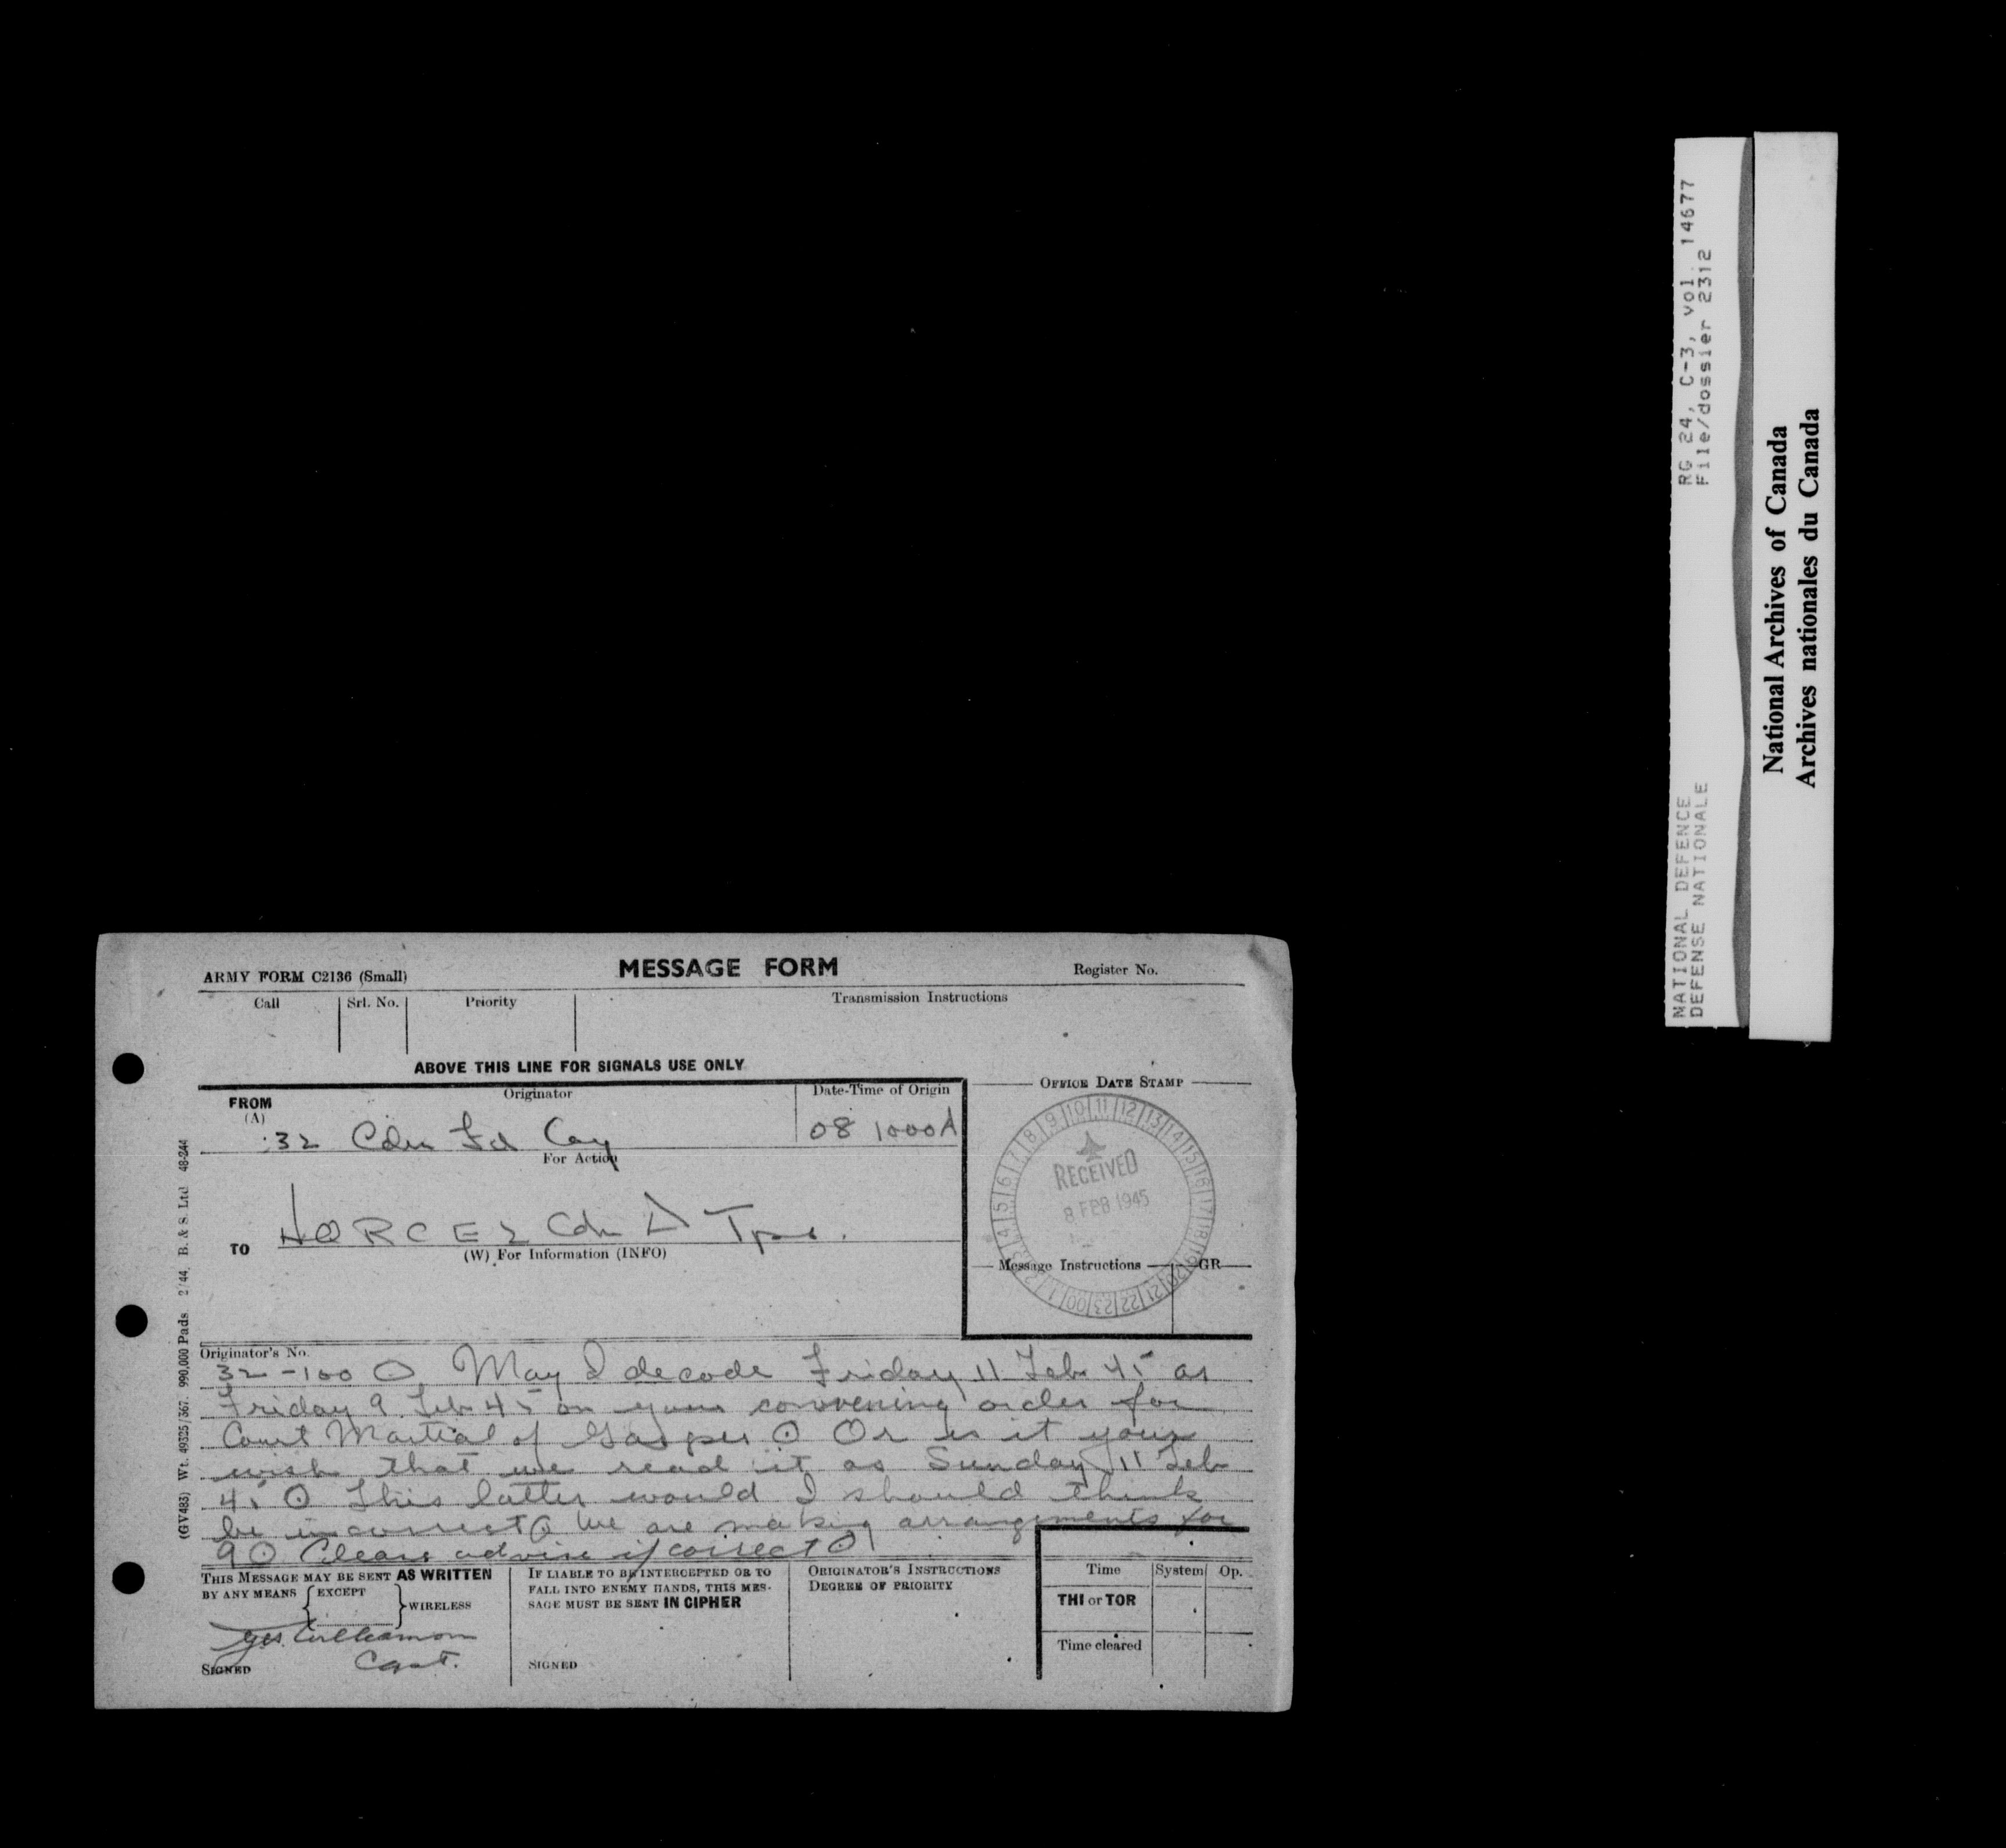 ARMY FORM C2136 (Small)
MESSAGE FORM
Register No.
Call
Srl. No.
Priority
Transmission Instructions
ABOVE THIS LINE FOR SIGNALS USE ONLY
FROM
(A)
Originator
Date-Time of Origin
32 Cdn Fd Coy
08 1000A
For Action
TO
HQ RCE 2 Cdn Δ Tps.
(W) For Information (INFO)
OFFICE DATE STAMP
1 2 3 4 5 6 7 8 9 10 11 12 13 14 15 16 17 18 19 20 21 22 23 00
RECEIVED
8 FEB 1945
Message Instructions
GR
Originator's No.
32-100 ⊙ May I decode Friday 11 Feb 45 as
Friday 9 Feb 45 on your convening order for
Court Martial of ⊙ Or is it your
wish that we read it as Sunday 11 Feb
45 ⊙ This latter would I should think
be incorrect ⊙ We are making arrangements for
9 ⊙ Please advise if correct ⊙
THIS MESSAGE MAY BE SENT AS WRITTEN
BY ANY MEANS { EXCEPT } WIRELESS
Williamson
Capt.
SIGNED
IF LIABLE TO BE INTERCEPTED OR TO
FALL INTO ENEMY HANDS, THIS MES-
SAGE MUST BE SENT IN CIPHER
SIGNED
ORIGINATOR'S INSTRUCTIONS
DEGREE OF PRIORITY
Time
System
Op.
THI or TOR
Time cleared
(GV483) Wt. 49325/367. 990,000 Pads 2/44. B. & S. Ltd 48-244
NATIONAL DEFENCE
DEFENSE NATIONALE
RG 24, C-3, vol. 14677
File/dossier 2312
National Archives of Canada
Archives nationales du Canada